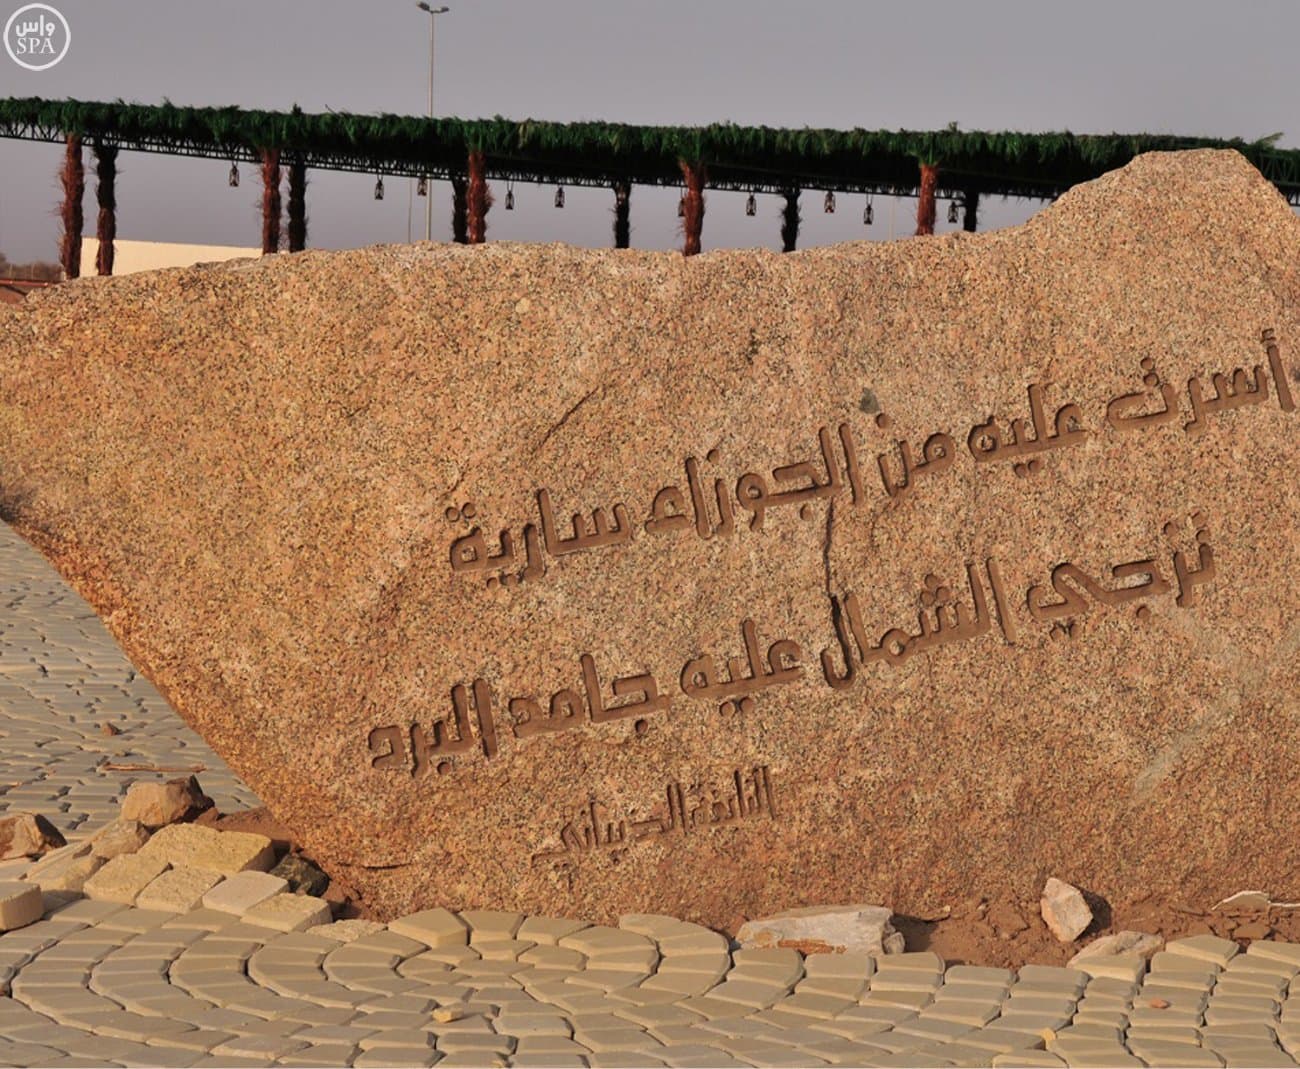 واس
SPA
أسرت عليه من الجوزاء سارية
تزجي الشمال عليه جامد البرد
النابغة الذبياني